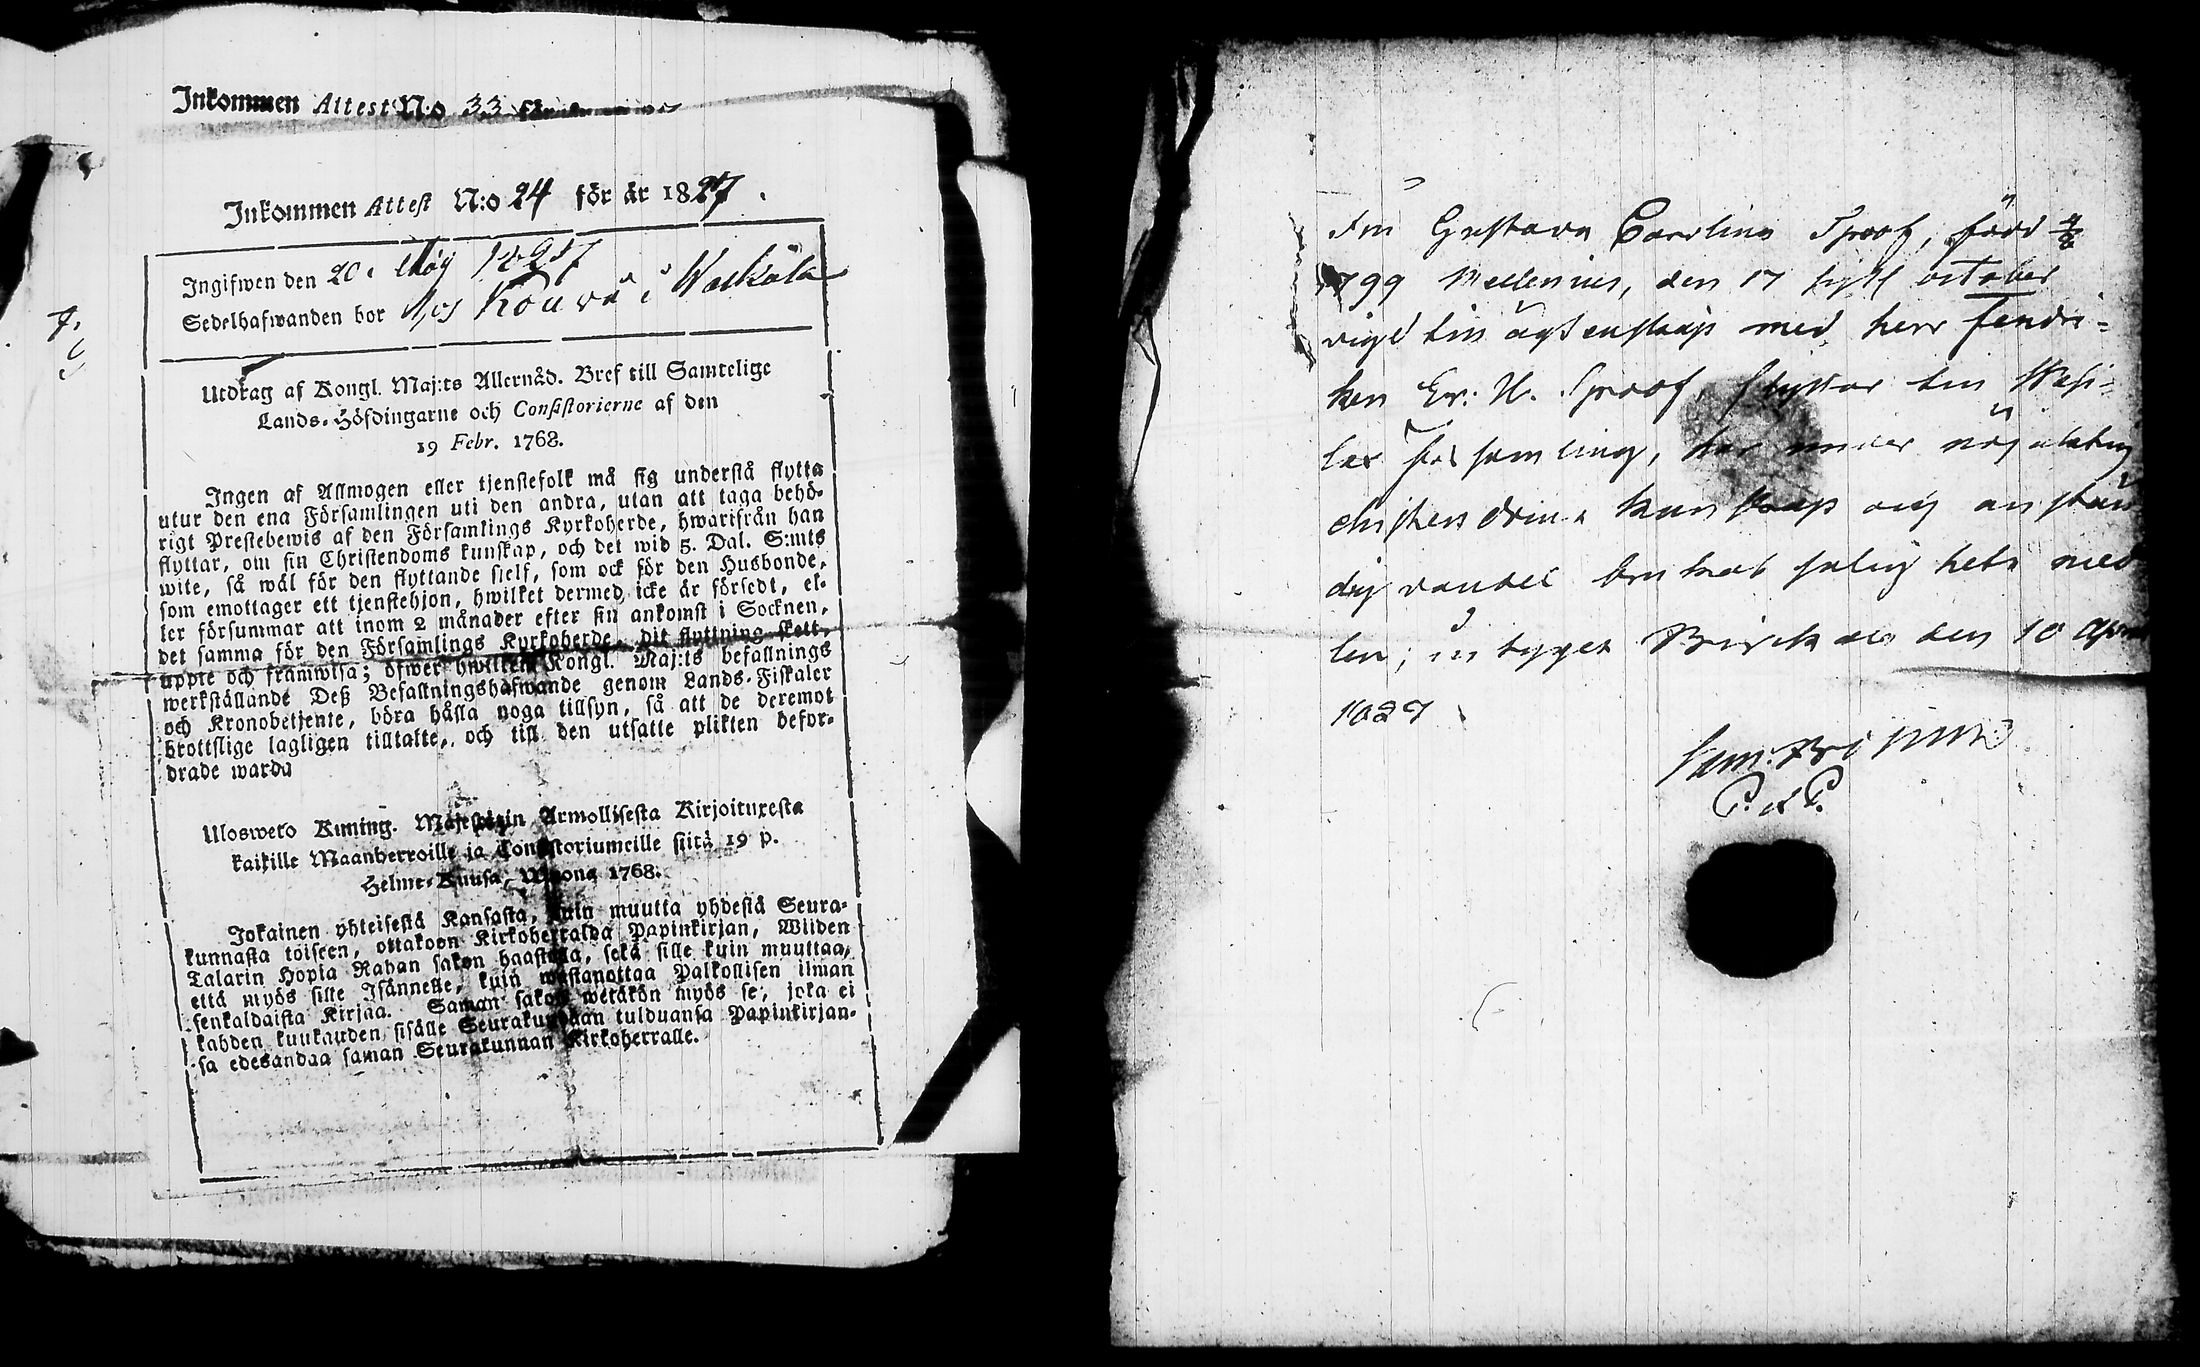 Inkommen Attest N:o 33 för år
Inkommen Attest N:o 24 för år 1827.
Ingifwen den 20. Maj 1827
Sedelhafwanden bor hos Kouva i Waskala
Utdrag af Kongl. Maj:ts Allernåd. Bref till Samtelige
Lands-Höfdingarne och Consistorierne af den
19 Febr. 1768.
Ingen af Allmogen eller tjenstefolk må sig understå flytta
utur den ena Församlingen uti den andra, utan att taga behö-
rigt Prestebewis af den Församlings Kyrkoherde, hwarifrån han
flyttar, om sin Christendoms kunskap, och det wid 5. Dal. S:mts
wite, så wäl för den flyttande sielf, som ock för den Husbonde,
som emottager ett tjenstehjon, hwilket dermed icke är försedt, el-
ler försummar att inom 2 månader efter sin ankomst i Socknen,
det samma för den Församlings Kyrkoherde, dit flyttning skett,
uppte och framwisa; öfwer hwilket Kongl. Maj:ts befallnings
werkställande Deß Befallningshafwande genom Lands-Fiskaler
och Kronobetjente, böra hålla noga tillsyn, så att de deremot
brottslige lagligen tilltalte, och till den utsatte plikten befor-
drade warda
Uloswero Kuning. Majestetin Armollisesta Kirjoituxesta
kaikille Maanherroille ja Consistoriumeille siitä 19 p.
Helme-Kuusa, Wuona 1768.
Jokainen yhteisestä Kansasta, kuin muutta yhdestä Seura-
kunnasta toiseen, ottakoon Kirkoherralda Papinkirjan, Wiiden
Talarin Hopia Rahan sakon haastolla, sekä sille kuin muuttaa,
että myös sille Isännelle, kuin wastanottaa Palkollisen ilman
senkaldaista Kirjaa. Saman sakon wetäkön myös se, joka ei
kahden kuukauden sisälle Seurakundaan tulduansa Papinkirjan-
sa edesandaa saman Seurakunnan Kirkoherralle.
Fru Gustava Carolina Sproof, född 4/8
1799 den 17 sistl october
vigd till ägtenskap med herr fendri-
ken Er: H. Sproof, flyttar till Wesi-
lax församling, har under nöjaktig
christendoms kunskap och anstän
dig vandel brukat salighets med
len; intygar Birckala den 10 April
1827
Sam:
P. et P.